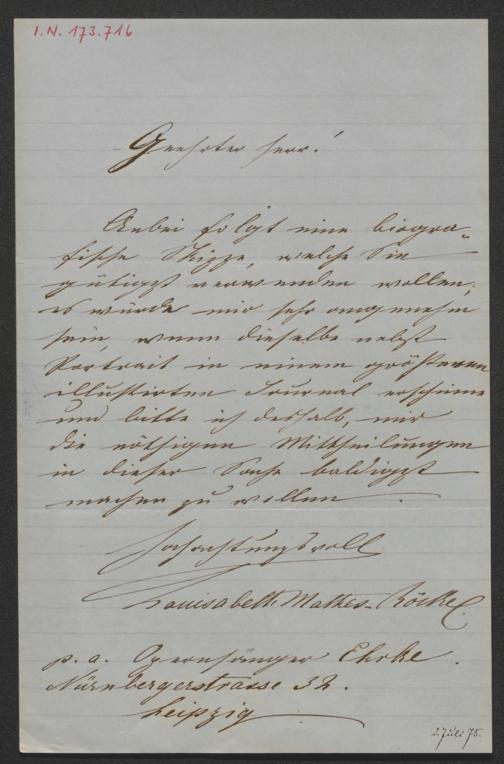 I.N. 173.716
Geehrter Herr!
Anbei folgt eine biogra-
fische Skizze, welche Sie
gütigst verwenden wollen;
es würde mir sehr angenehm
sein, wenn dieselbe nebst
Portrait in einem größeren
illustrirten Journal erschiene
und bitte ich deshalb, mir
die nöthigen Mittheilungen
in dieser Sache baldigst
machen zu wollen.
Hochachtungsvoll
Louisabeth Mathes-Röckel.
p. a. Opernsänger Ehrke.
Nürnbergerstrasse 32.
Leipzig
2. Juli 75.